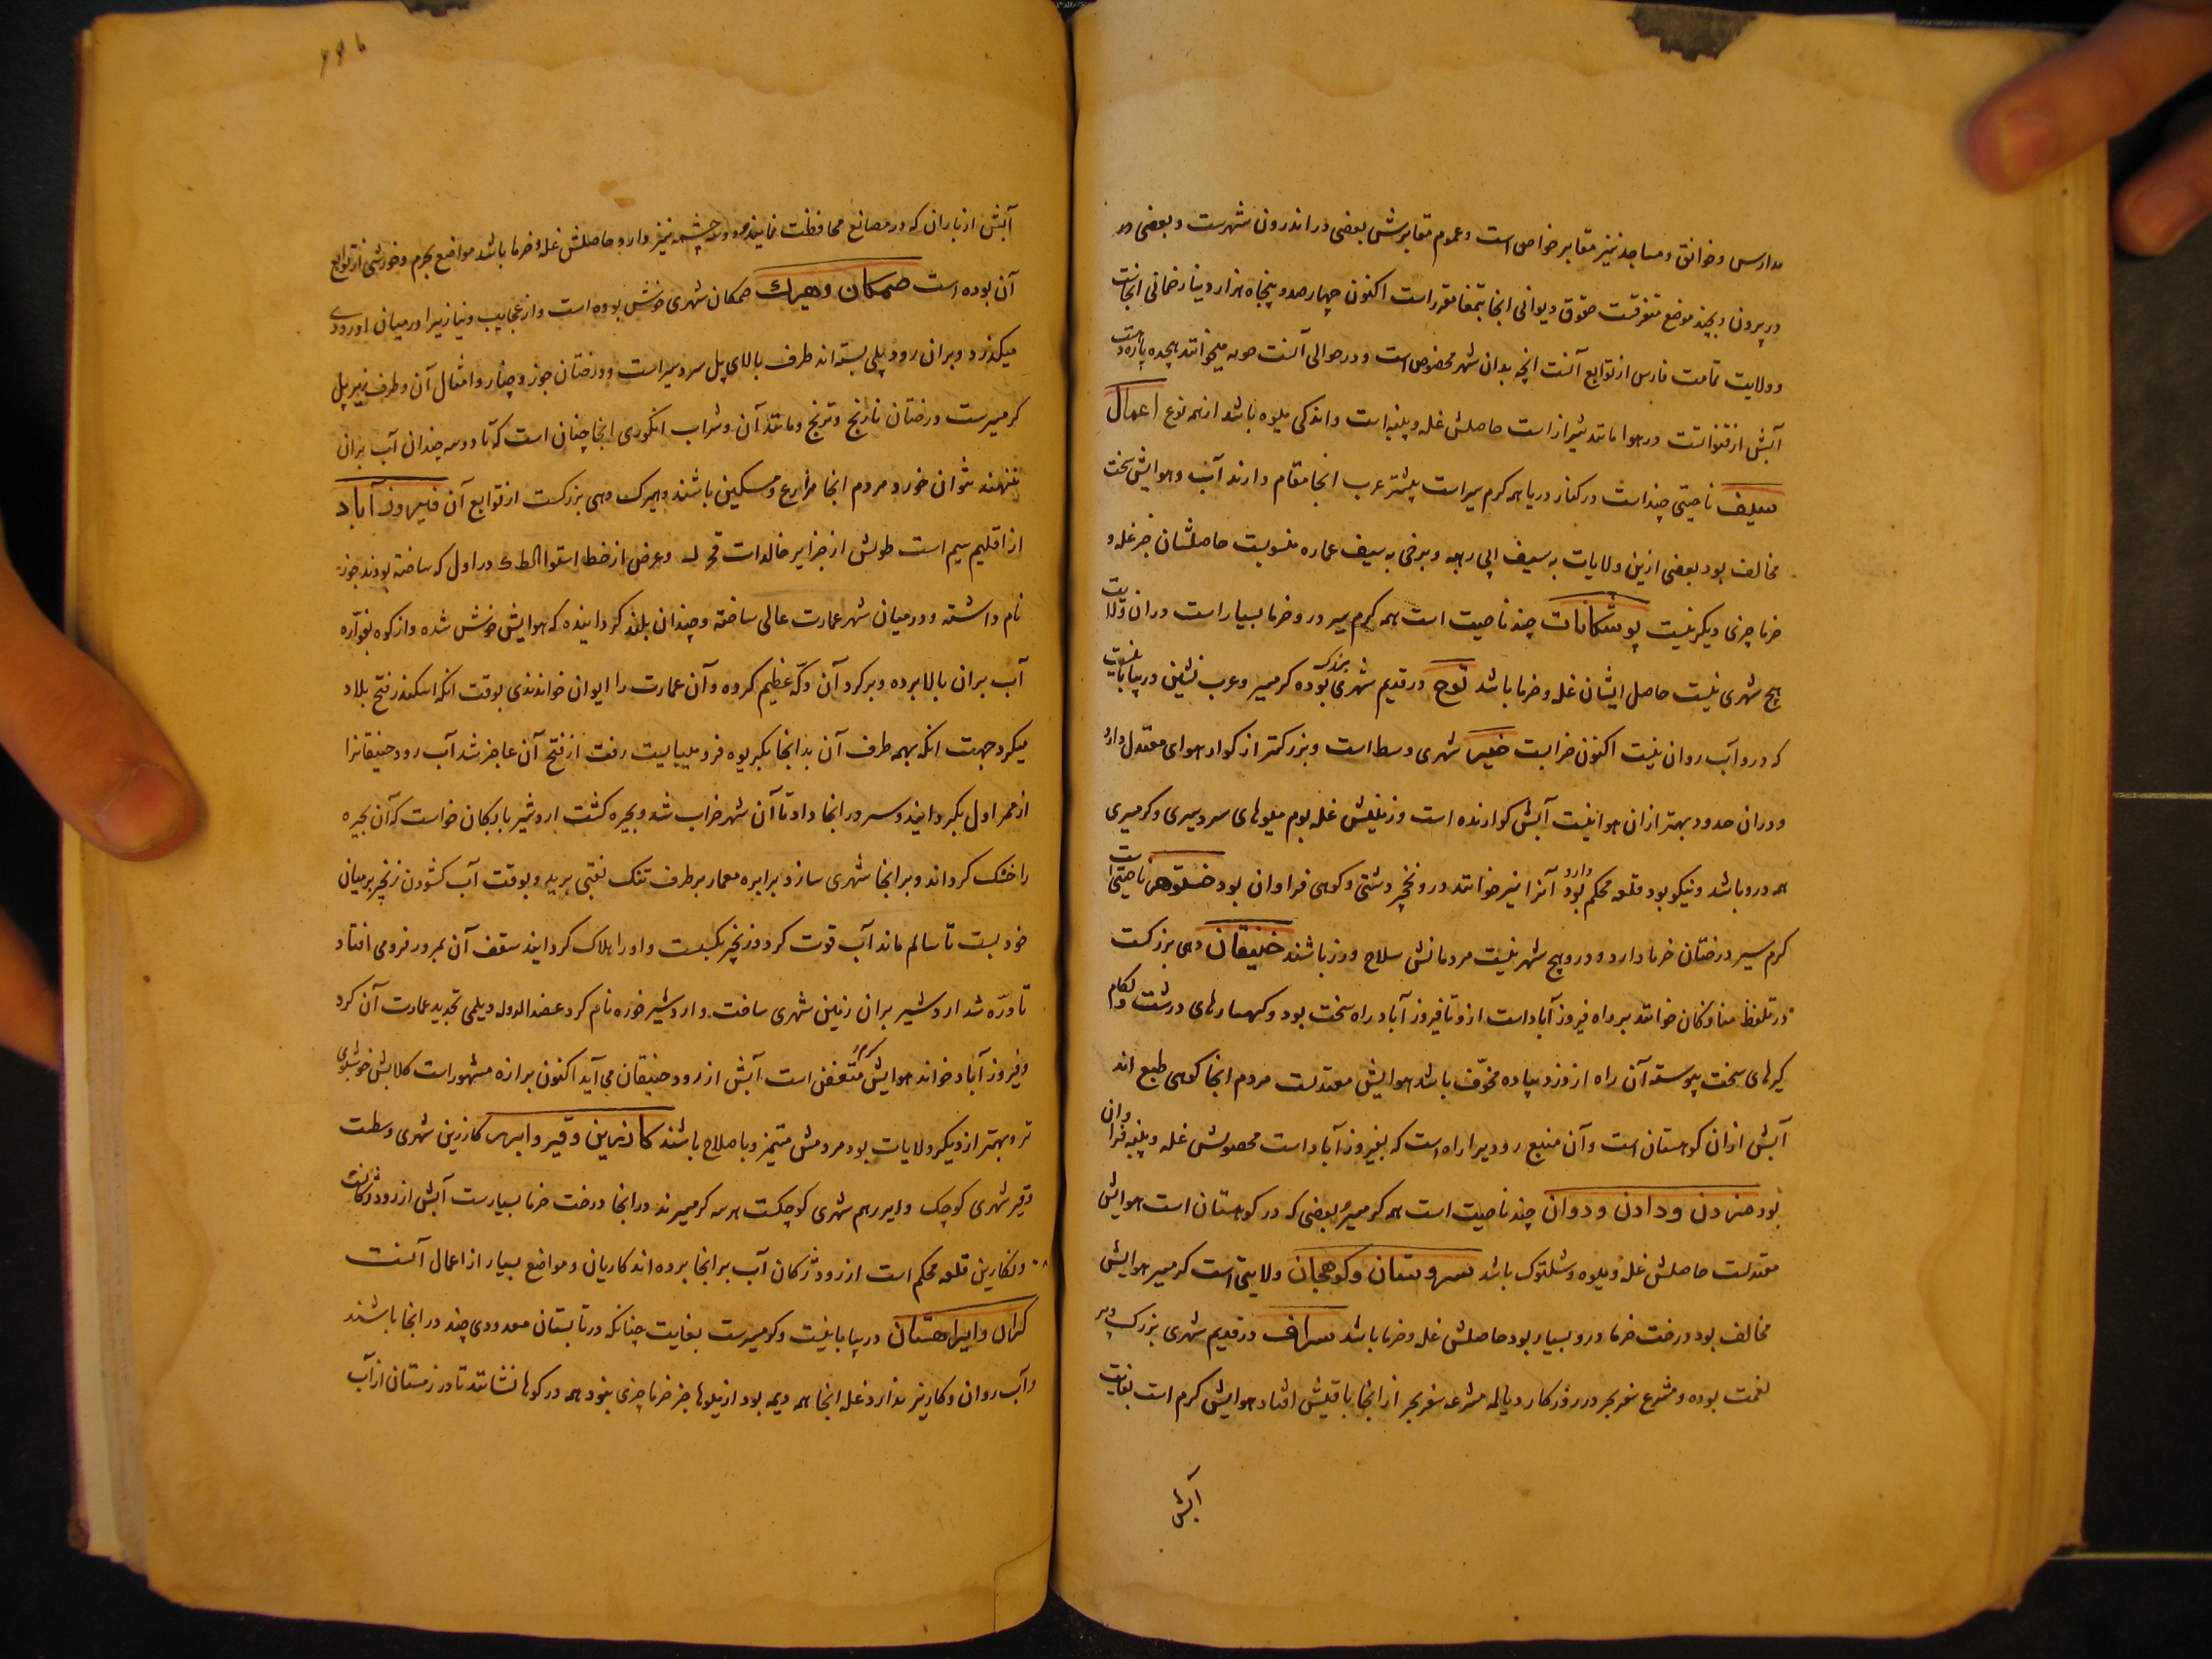 مدارس و خوانق و مساجد نیز مقابر خواص است و عموم مقابرش بعضی در اندرون شهرست و بعضی در
در برون و بچند موضع متفرقست حقوق دیوانی انجا بتمغا مقررست اکنون چهارصد و پنجاه هزار دینار ضمانی انجاست
و ولایت تمامت فارس از توابع آنست انچه بدان شهر مخصوص است و در حوالی آنست حومه میخوانند هیجده پاره دیه است
آبش از قنواتست و در هوا مانند شیراز است حاصلش غله و پنبه است و اندکی میوه باشد از همه نوع اعمال
سیف ناحیتی چند است در کنار دریا همه کرم سیر است بیشتر عرب انجا مقام دارند آب و هوایش سخت
مخالف بود بعضی ازین ولایات به سیف ابی زهیر و برخی به سیف عماره منسوبست حاصلشان جز غله و
خرما چیزی دیگر نیست بوشکانات چند ناحیت است همه کرم سیر در و خرما بسیار است در ان ولایت
هیچ شهری نیست حاصل ایشان غله و خرما باشد توج در قدیم شهری بزرک بوده کرمسیر و عرب نشین در بیابانیست
که درو آب روان نیست اکنون خرابست خبیر شهری وسط است و بزرکتر از کوار هوای معتدل دارد
و در ان حدود بهتر از ان هوا نیست آبش کوارنده است و زمینش غله بوم میوهای سردسیری و کرمسیری
همه درو باشد و نیکو بود قلعه محکم دارد آنرا تیر خوانند درو نخچیر دشتی و کوهی فراوان بود خنستوهر ناحیتی است
کرم سیر درختان خرما دارد و درو هیچ شهر نیست مردمانش سلاح ورز باشند خنیفقان دهی بزرکست
در تلفظ خنافکان خوانند بر راه فیروزآباد است ازو تا فیروزآباد راه سخت بود و کهسارهای درشت و لکام
کیرهای سخت پیوسته آن راه از دزد پیاده مخوّف باشد هوایش معتدلست مردم انجا کوهی طبع اند
آبش از ان کوهستان است و آن منبع رود براره است که بفیروزآباد است محصولش غله و پنبه فراوان
بود جزدن و دادن و دوان چند ناحیت است همه کرمسیر بعضی که در کوهستان است هوایش
معتدلست حاصلش غله و میوه و شلتوک باشد سروستان و کوهنجان ولایتی است کرمسیر هوایش
مخالف بود درخت خرما درو بسیار بود حاصلش غله و خرما باشد سراف در قدیم شهری بزرک و پر
نعمت بوده و مشرع سفر بحر در روزکار دیالمه مشرعه سفر بحر از انجا باقلیش افتاد هوایش کرم است بغایت
آبش
آبش از باران که در مصانع محافظت نمایند و دو سه چشمه نیز دارد حاصلش غله و خرما باشد مواضع بجرم و خورشی از توابع
آن بوده است صمکان و هیرک صمکان شهری خوش بوده است و از عجایب دنیا زیرا در میان او رودی
میکذرد و بر ان رود پلی بسته اند طرف بالای پل سردسیر است و درختان جوز و چنار و امثال آن و طرف زیر پل
کرمسیرست درختان نارنج و ترنج و مانند آن و شراب انکوری انجا چنان است که تا دو سه چندان آب بران
ننهند نتوان خورد مردم انجا مزارع و مسکین باشند و هیرک دهی بزرکست از توابع آن فیروزآباد
از اقلیم سیم است طولش از جزایر خالدات و عرض از خط استوا در اول که ساخته بودند جور
نام داشته و در میان شهر عمارت عالی ساخته و چندان بلند کردانیده که هوایش خوش شده و از کوه بفواره
آب بر ان بالا برده و بر کرد آن دکه عظیم کرده و آن عمارت را ایوان خواندندی بوقت انکه اسکندر فتح بلاد
میکرد جهت انکه بهمه طرف آن بدانجا بکریوه فرو میبایست رفت از فتح آن عاجز شد آب رود خنیفقان را
از ممر اول بکردانید و سر در انجا داد تا آن شهر خراب شد و بحیره کشت اردشیر بابکان خواست که آن بحیره
را خشک کرداند و بر انجا شهری سازد برابره معمار بر طرف تنک نقبی برید و بوقت آب کشودن زنجیر بر میان
خود بست تا سالم ماند آب قوت کرد و زنجیر بکسست و او را هلاک کردانید سقف آن بمرور فرو می افتاد
تا دره شد اردشیر بر ان زمین شهری ساخت و اردشیر خوره نام کرد عضد الدوله دیلمی تجدید عمارت آن کرد
و فیروزآباد خواند هوایش کرم متعفن است آبش از رود خنیقان می آید اکنون برازه مشهور است کلابش خوشبوی
تر و بهتر از دیکر ولایات بود مردمش متمیز و باصلاح باشند کازرین و قیر و ابرر کارزین شهری وسطست
و قیر شهری کوچک و ابرر هم شهری کوچکست هر سه کرمسیرند در انجا درخت خرما بسیارست آبش از رود ثکانست
و بکارزین قلعه محکم است از رود ثکان آب بر انجا برده اند کاریان و مواضع بسیار از اعمال آنست
کران و ایراهستان در بیابانیست و کرمسیرست بغایت چنانکه در تابستان معدودی چند در انجا باشند
و آب روان و کاریز ندارد غله انجا همه دیمه بود از میوها جز خرما چیزی نبود همه در کوها نشانند تا در زمستان از آب